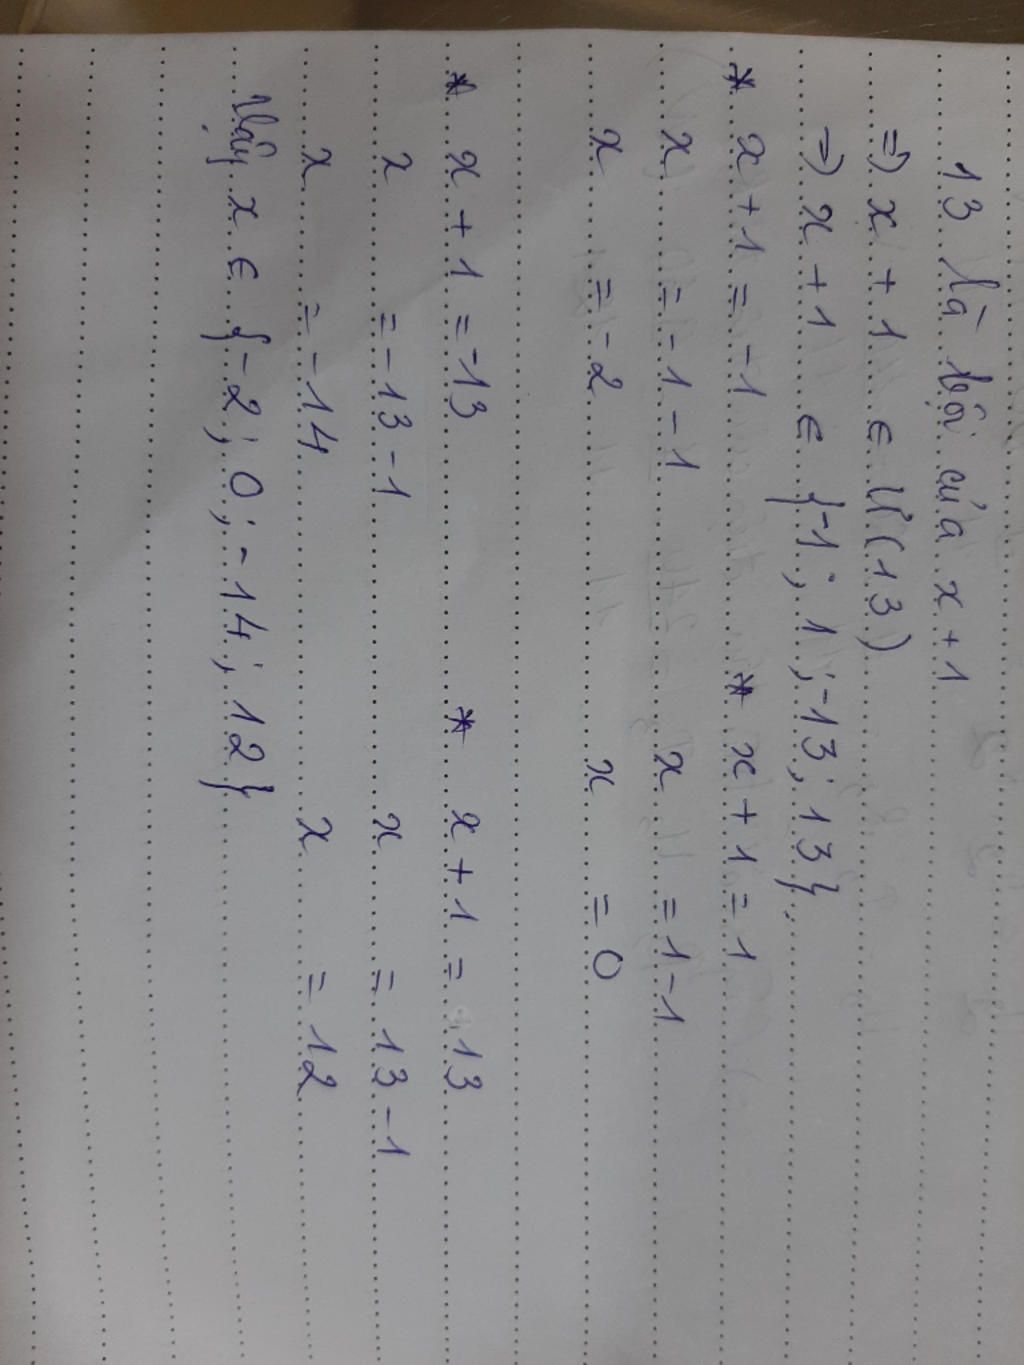 13 là bội của x+1
=> x+1 ∈ Ư(13)
=> x+1 ∈ {-1; 1; -13; 13}.
* x+1 = -1 * x+1 = 1
x = -1-1 x = 1-1
x = -2 x = 0
* x+1 = -13 * x+1 = 13
x = -13-1 x = 13-1
x = -14 x = 12
Vậy x ∈ {-2; 0; -14; 12}